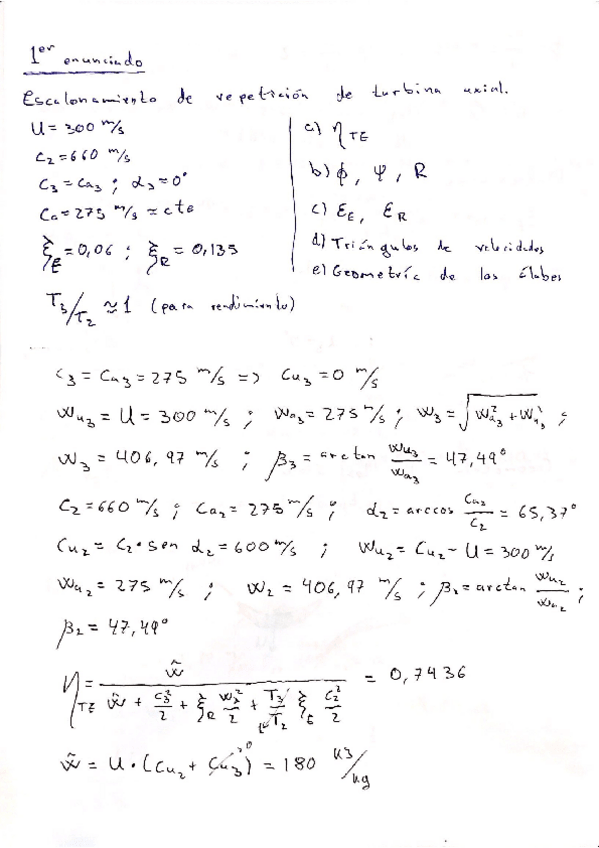 1er enunciado
Escalonamiento de repetición de turbina axial.
U = 300 m/s
C2 = 660 m/s
C3 = Ca3 ; α3 = 0°
Ca = 275 m/s = cte
ξE = 0,06 ; ξR = 0,135
T3/T2 ≈ 1 (para rendimiento)
a) ηTE
b) ϕ, Ψ, R
c) εE, εR
d) Triángulos de velocidades
e) Geometría de los álabes
C3 = Ca3 = 275 m/s => Cu3 = 0 m/s
Wu3 = U = 300 m/s ; Wa3 = 275 m/s ; W3 = √(Wa3² + Wu3²) ;
W3 = 406,97 m/s ; β3 = arctan Wu3/Wa3 = 47,49°
C2 = 660 m/s ; Ca2 = 275 m/s ; α2 = arccos Ca2/C2 = 65,37°
Cu2 = C2 · sen α2 = 600 m/s ; Wu2 = Cu2 - U = 300 m/s
Wa2 = 275 m/s ; W2 = 406,97 m/s ; β2 = arctan Wu2/Wa2 ;
β2 = 47,49°
ηTE = w̃ / (w̃ + C3²/2 + ξR W3²/2 + T3/T2 ξE C2²/2) = 0,7436
w̃ = U · (Cu2 + Cu3) = 180 KJ/kg